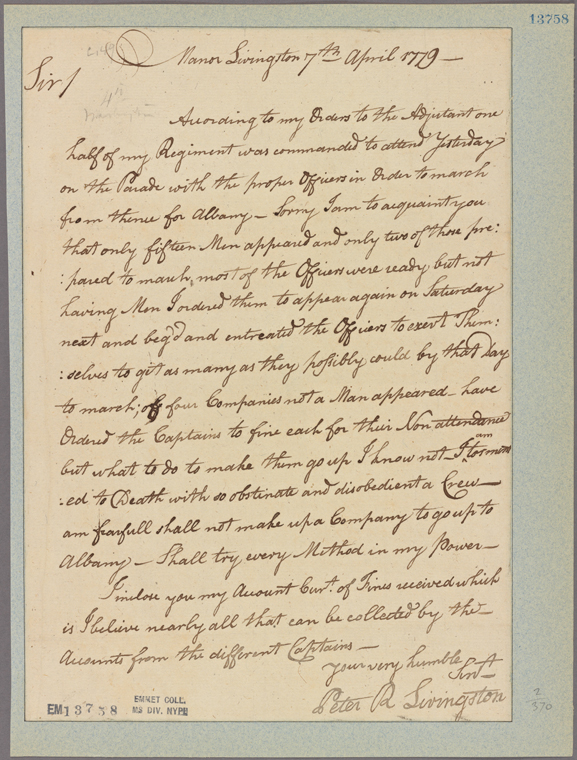 13758
Manor Livingston 7th April 1779 —
Sir /
According to my Orders to the Adjutant one
half of my Regiment was commanded to attend Yesterday
on the Parade with the proper Officers in Order to march
from thence for Albany — Sorry I am to acquaint you
that only fifteen Men appeared and only two of those pre:
:pared to march, most of the Officers were ready but not
having Men I ordered them to appear again on Saturday
next and beg'd and entreated the Officers to exert Them:
:selves to git as many as they possibly could by that Day
to march; of four Companies not a Man appeared — have
Ordered the Captains to fine each for their Non attendance
but what to do to make them go up I know not I am torment
:ed to Death with so obstinate and disobedient a Crew —
am fearfull shall not make up a Company to go up to
Albany — Shall try every Method in my Power —
I inclose you my Account Curt. of Fines received which
is I believe nearly all that can be collected by the —
Accounts from the different Captains —
your very humble
Servt
Peter R Livingston
EM13758
EMMET COLL.
MS DIV. NYPL
2
370